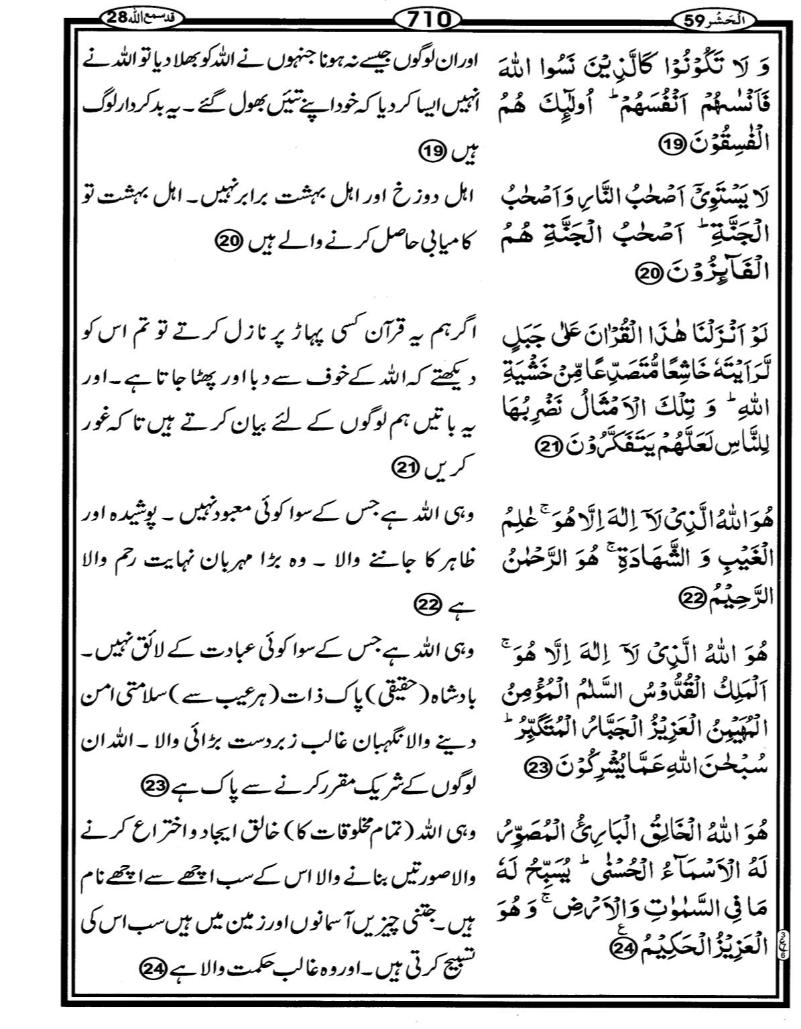 اَلْحَشْر 59
710
قد سمع الله 28
وَ لَا تَكُوْنُوْا كَالَّذِيْنَ نَسُوا اللّٰهَ
فَاَنْسٰىهُمْ اَنْفُسَهُمْ ؕ اُولٰٓئِكَ هُمُ
الْفٰسِقُوْنَ ⑲
اور ان لوگوں جیسے نہ ہونا جنہوں نے اللہ کو بھلا دیا تو اللہ نے
انہیں ایسا کر دیا کہ خود اپنے تئیں بھول گئے ۔ یہ بدکردار لوگ
ہیں ⑲
لَا يَسْتَوِيْۤ اَصْحٰبُ النَّارِ وَ اَصْحٰبُ
الْجَنَّةِ ؕ اَصْحٰبُ الْجَنَّةِ هُمُ
الْفَآئِزُوْنَ ⑳
اہل دوزخ اور اہل بہشت برابر نہیں ۔ اہل بہشت تو
کامیابی حاصل کرنے والے ہیں ⑳
لَوْ اَنْزَلْنَا هٰذَا الْقُرْاٰنَ عَلٰى جَبَلٍ
لَّرَاَيْتَهٗ خَاشِعًا مُّتَصَدِّعًا مِّنْ خَشْيَةِ
اللّٰهِ ؕ وَ تِلْكَ الْاَمْثَالُ نَضْرِبُهَا
لِلنَّاسِ لَعَلَّهُمْ يَتَفَكَّرُوْنَ ㉑
اگر ہم یہ قرآن کسی پہاڑ پر نازل کرتے تو تم اس کو
دیکھتے کہ اللہ کے خوف سے دبا اور پھٹا جاتا ہے ۔ اور
یہ باتیں ہم لوگوں کے لئے بیان کرتے ہیں تا کہ غور
کریں ㉑
هُوَ اللّٰهُ الَّذِيْ لَاۤ اِلٰهَ اِلَّا هُوَ ۚ عٰلِمُ
الْغَيْبِ وَ الشَّهَادَةِ ۚ هُوَ الرَّحْمٰنُ
الرَّحِيْمُ ㉒
وہی اللہ ہے جس کے سوا کوئی معبود نہیں ۔ پوشیدہ اور
ظاہر کا جاننے والا ۔ وہ بڑا مہربان نہایت رحم والا
ہے ㉒
هُوَ اللّٰهُ الَّذِيْ لَاۤ اِلٰهَ اِلَّا هُوَ ۚ
اَلْمَلِكُ الْقُدُّوْسُ السَّلٰمُ الْمُؤْمِنُ
الْمُهَيْمِنُ الْعَزِيْزُ الْجَبَّارُ الْمُتَكَبِّرُ ؕ
سُبْحٰنَ اللّٰهِ عَمَّا يُشْرِكُوْنَ ㉓
وہی اللہ ہے جس کے سوا کوئی عبادت کے لائق نہیں ۔
بادشاہ (حقیقی) پاک ذات (ہر عیب سے) سلامتی امن
دینے والا نگہبان غالب زبردست بڑائی والا ۔ اللہ ان
لوگوں کے شریک مقرر کرنے سے پاک ہے ㉓
هُوَ اللّٰهُ الْخَالِقُ الْبَارِئُ الْمُصَوِّرُ
لَهُ الْاَسْمَآءُ الْحُسْنٰى ؕ يُسَبِّحُ لَهٗ
مَا فِي السَّمٰوٰتِ وَ الْاَرْضِ ۚ وَ هُوَ
الْعَزِيْزُ الْحَكِيْمُ ㉔ ع
وہی اللہ (تمام مخلوقات کا) خالق ایجاد و اختراع کرنے
والا صورتیں بنانے والا اس کے سب اچھے سے اچھے نام
ہیں ۔ جتنی چیزیں آسمانوں اور زمین میں ہیں سب اس کی
تسبیح کرتی ہیں ۔ اور وہ غالب حکمت والا ہے ㉔